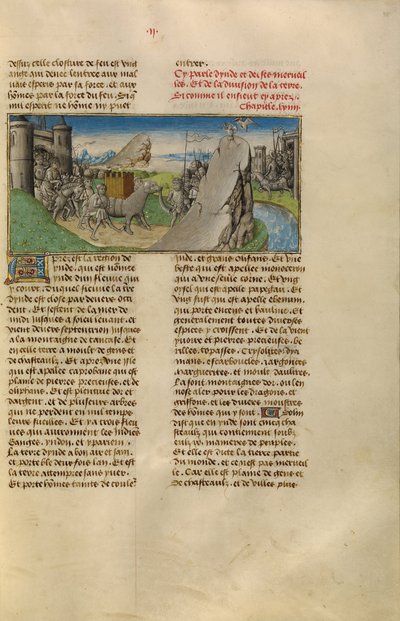 .II.
dessus celle closture de feu est ung
ange qui devee lentree aux mal
vais esperis par sa force. et aux
hommes par la force du feu. Si que
nul esperit ne homme ny puet
entrer.
Cy parle dynde et de ses merveil
les. Et de la division de la terre.
Si comme il ensieut cy apres.
Chapitle
Apres est la region de
ynde. qui est nomme
ynde dun fleuve qui
y court. Duquel fleuve la tre
dynde est close par devers occi
dent. Et sestent de la mer de
midi jusques a soleil levant. et
vient devers septentrion jusques
a la montaigne de caucase. Et
en celle terre a moult de gens et
de chasteaulx. Et apres une isle
qui est apelee caprobane qui est
plaine de pierres precieuses. et de
oliphans. Et est plentive dor et
dargent. et de plusieurs arbres
qui ne perdent en nul temps
leurs fueilles. Et y a trois fleu
ves qui avironnent les Indies
Ganges. yndon. et
La terre dynde a bon air et sain.
et porte ble deux fois lan. Et est
la terre attempree sans yver.
Et porte hommes tainte de coule
ynde. et grans olifans. Et une
beste qui est apelee monoceron
qui a une seule corne. Et ung
oysel qui est apele papegau. Et
ung fust qui est apelle ebenum.
qui porte encens et
generalement toutes diverses
espices y croissent. Et de la vient
yvoire et pierres precieuses. be
rilles. topasses. Crysolites. dia
mans. escarboucles.
marguerites. et moult daultres.
La sont montaignes dor. ou len
nose aler pour les dragons. et
griffons. et les divers monstres
des hommes qui y sont. Solin
dist que en ynde sont cincq
chasteaulx qui contiennent
manieres de peuples.
Et elle est dicte la tierce partie
du monde. et ce nest pas merveil
le. Car elle est plaine de gens et
de chasteaulx. et de villes plus